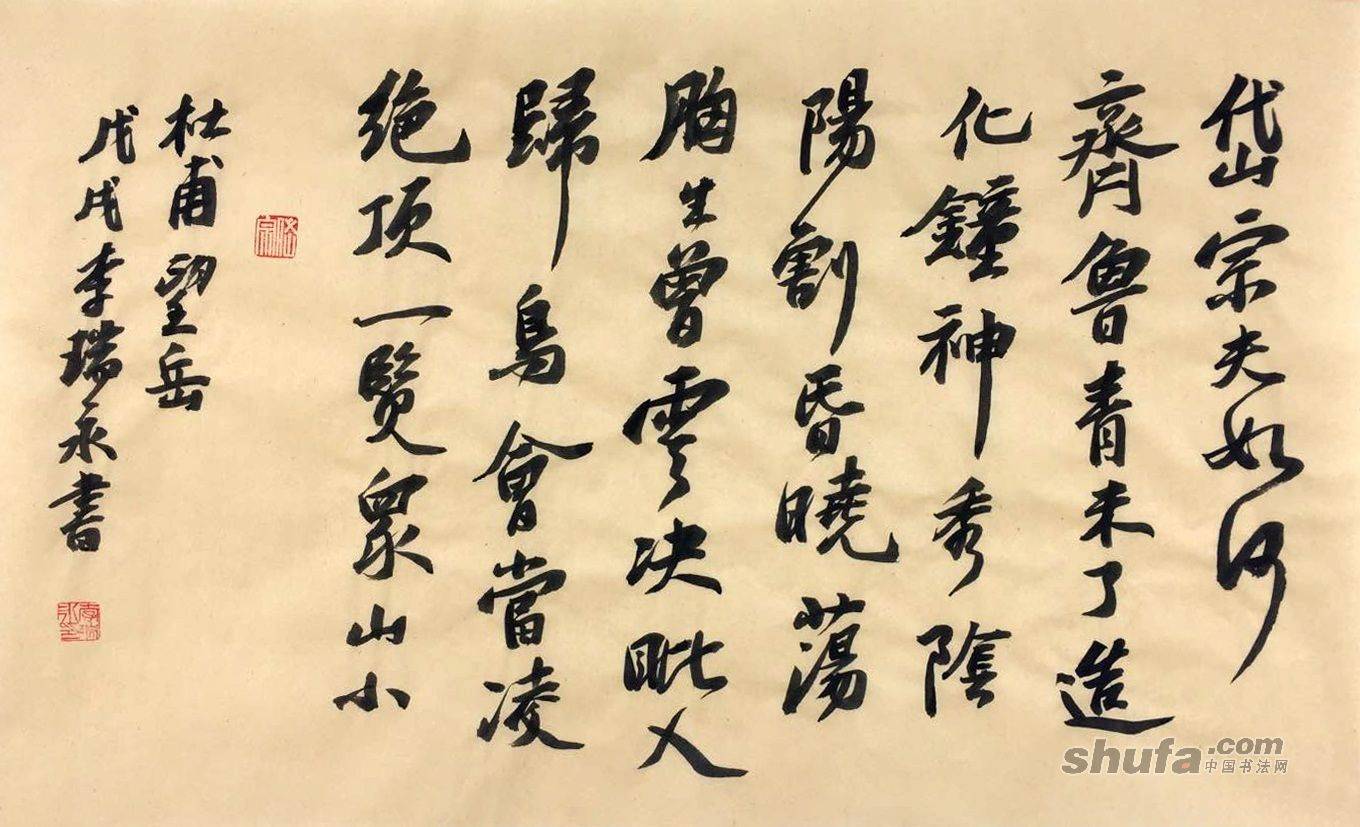 岱宗夫如何
齊魯青未了造
化鐘神秀陰
陽割昏曉蕩
胸生曾雲決眦入
歸鳥會當凌
绝顶一覽眾山小
杜甫望岳
戊戌李瑞永書
shufa.com
中国书法网